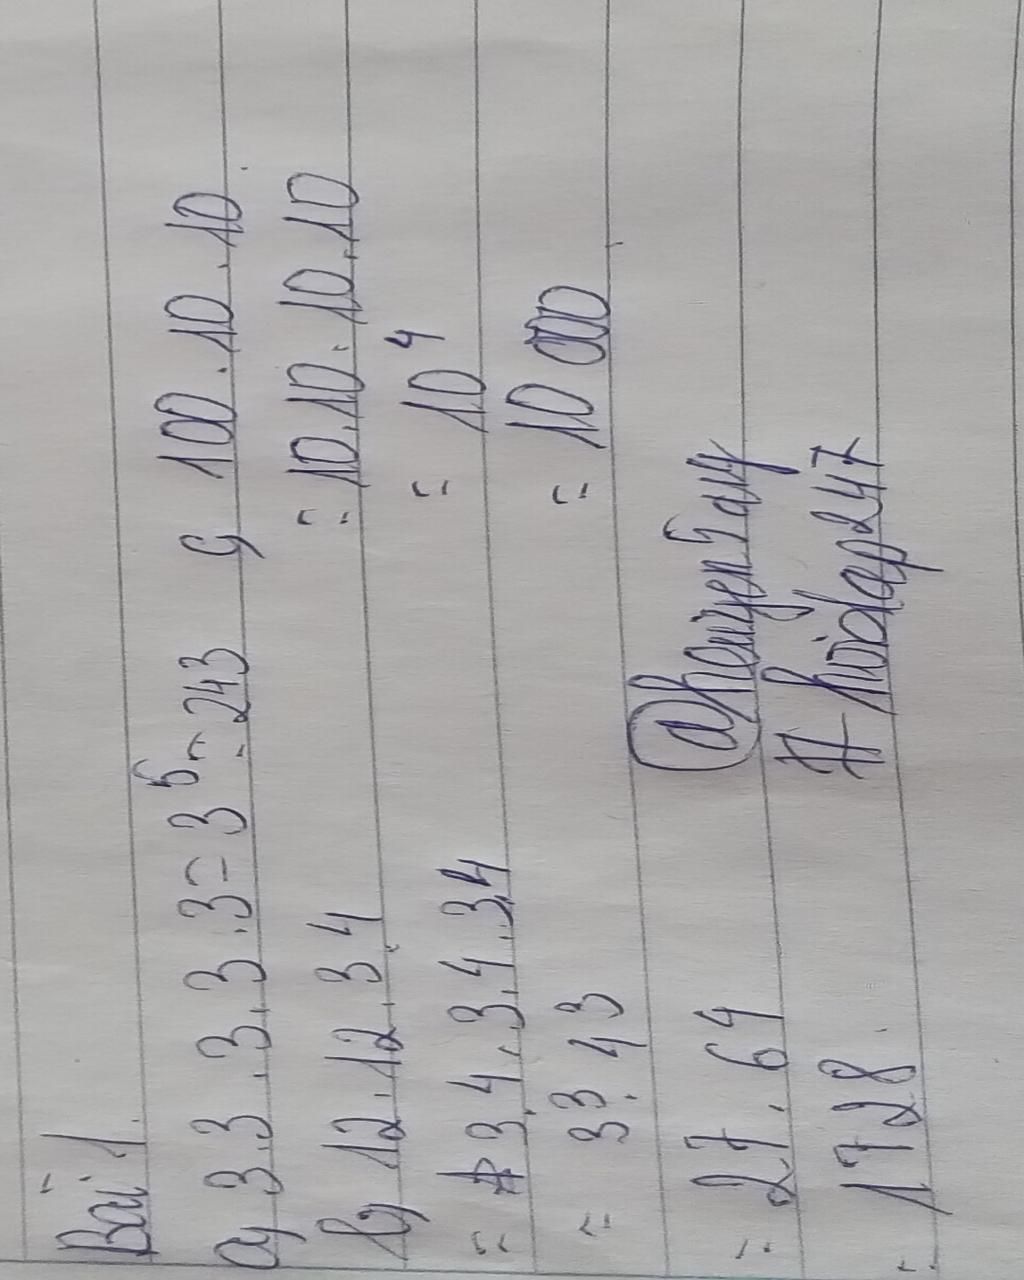 Bài 1.
a, 3.3.3.3.3 = 3⁵ = 243
b, 12.12.3.4
= 3.4.3.4.3.4
= 3³.4³
= 27.64
= 1728.
c, 100.10.10.
= 10.10.10.10
= 10⁴
= 10 000
#hoidap247